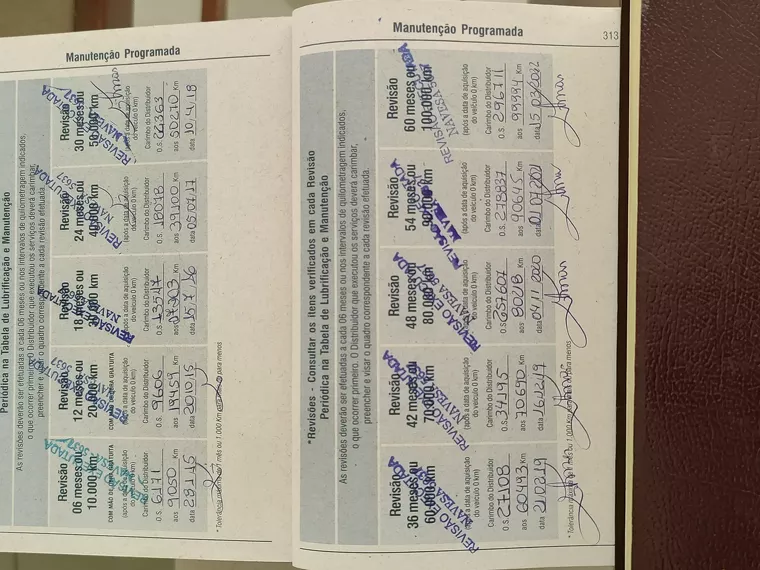 Manutenção Programada
Periódica na Tabela de Lubrificação e Manutenção
As revisões deverão ser efetuadas a cada 06 meses ou nos intervalos de quilometragem indicados,
o que ocorrer primeiro. O Distribuidor que executou os serviços deverá carimbar,
preencher e visar o quadro correspondente a cada revisão efetuada.
Revisão
06 meses ou
10.000 km
COM MÃO DE OBRA GRATUITA
(após a data de aquisição
do veículo 0 km)
Carimbo do Distribuidor
O.S. 6171
aos 9050 Km
data 28.1.15
Revisão
12 meses ou
20.000 km
COM MÃO DE OBRA GRATUITA
(após a data de aquisição
do veículo 0 km)
Carimbo do Distribuidor
O.S. 9606
aos 19459 Km
data 20.10.15
Revisão
18 meses ou
(após a data de aquisição
do veículo 0 km)
Carimbo do Distribuidor
O.S. 13547
aos Km
data 15.7.16
Revisão
24 meses ou
40.000 km
(após a data de aquisição
do veículo 0 km)
Carimbo do Distribuidor
O.S. 18078
aos 39100 Km
data 05.07.17
Revisão
30 meses ou
50.000 km
(após a data de aquisição
do veículo 0 km)
Carimbo do Distribuidor
O.S. 22363
aos 50270 Km
data 10.4.18
* Tolerância máxima de 1 mês ou 1.000 Km para menos
Manutenção Programada
313
*Revisões - Consultar os itens verificados em cada Revisão
Periódica na Tabela de Lubrificação e Manutenção
As revisões deverão ser efetuadas a cada 06 meses ou nos intervalos de quilometragem indicados,
o que ocorrer primeiro. O Distribuidor que executou os serviços deverá carimbar,
preencher e visar o quadro correspondente a cada revisão efetuada.
Revisão
36 meses ou
60.000 km
(após a data de aquisição
do veículo 0 km)
Carimbo do Distribuidor
O.S. 27108
aos 60493 Km
data 21.02.19
Revisão
42 meses ou
70.000 km
(após a data de aquisição
do veículo 0 km)
Carimbo do Distribuidor
O.S. 34195
aos 70690 Km
data 16.12.19
Revisão
48 meses ou
80.000 km
(após a data de aquisição
do veículo 0 km)
Carimbo do Distribuidor
O.S. 257607
aos 80218 Km
data 04.11.2020
Revisão
54 meses ou
90.000 km
(após a data de aquisição
do veículo 0 km)
Carimbo do Distribuidor
O.S. 278837
aos 90645 Km
data 01.07.2021
Revisão
60 meses ou
100.000 km
(após a data de aquisição
do veículo 0 km)
Carimbo do Distribuidor
O.S. 296711
aos 99994 Km
data 15.03.2022
* Tolerância máxima de 1 mês ou 1.000 Km para menos